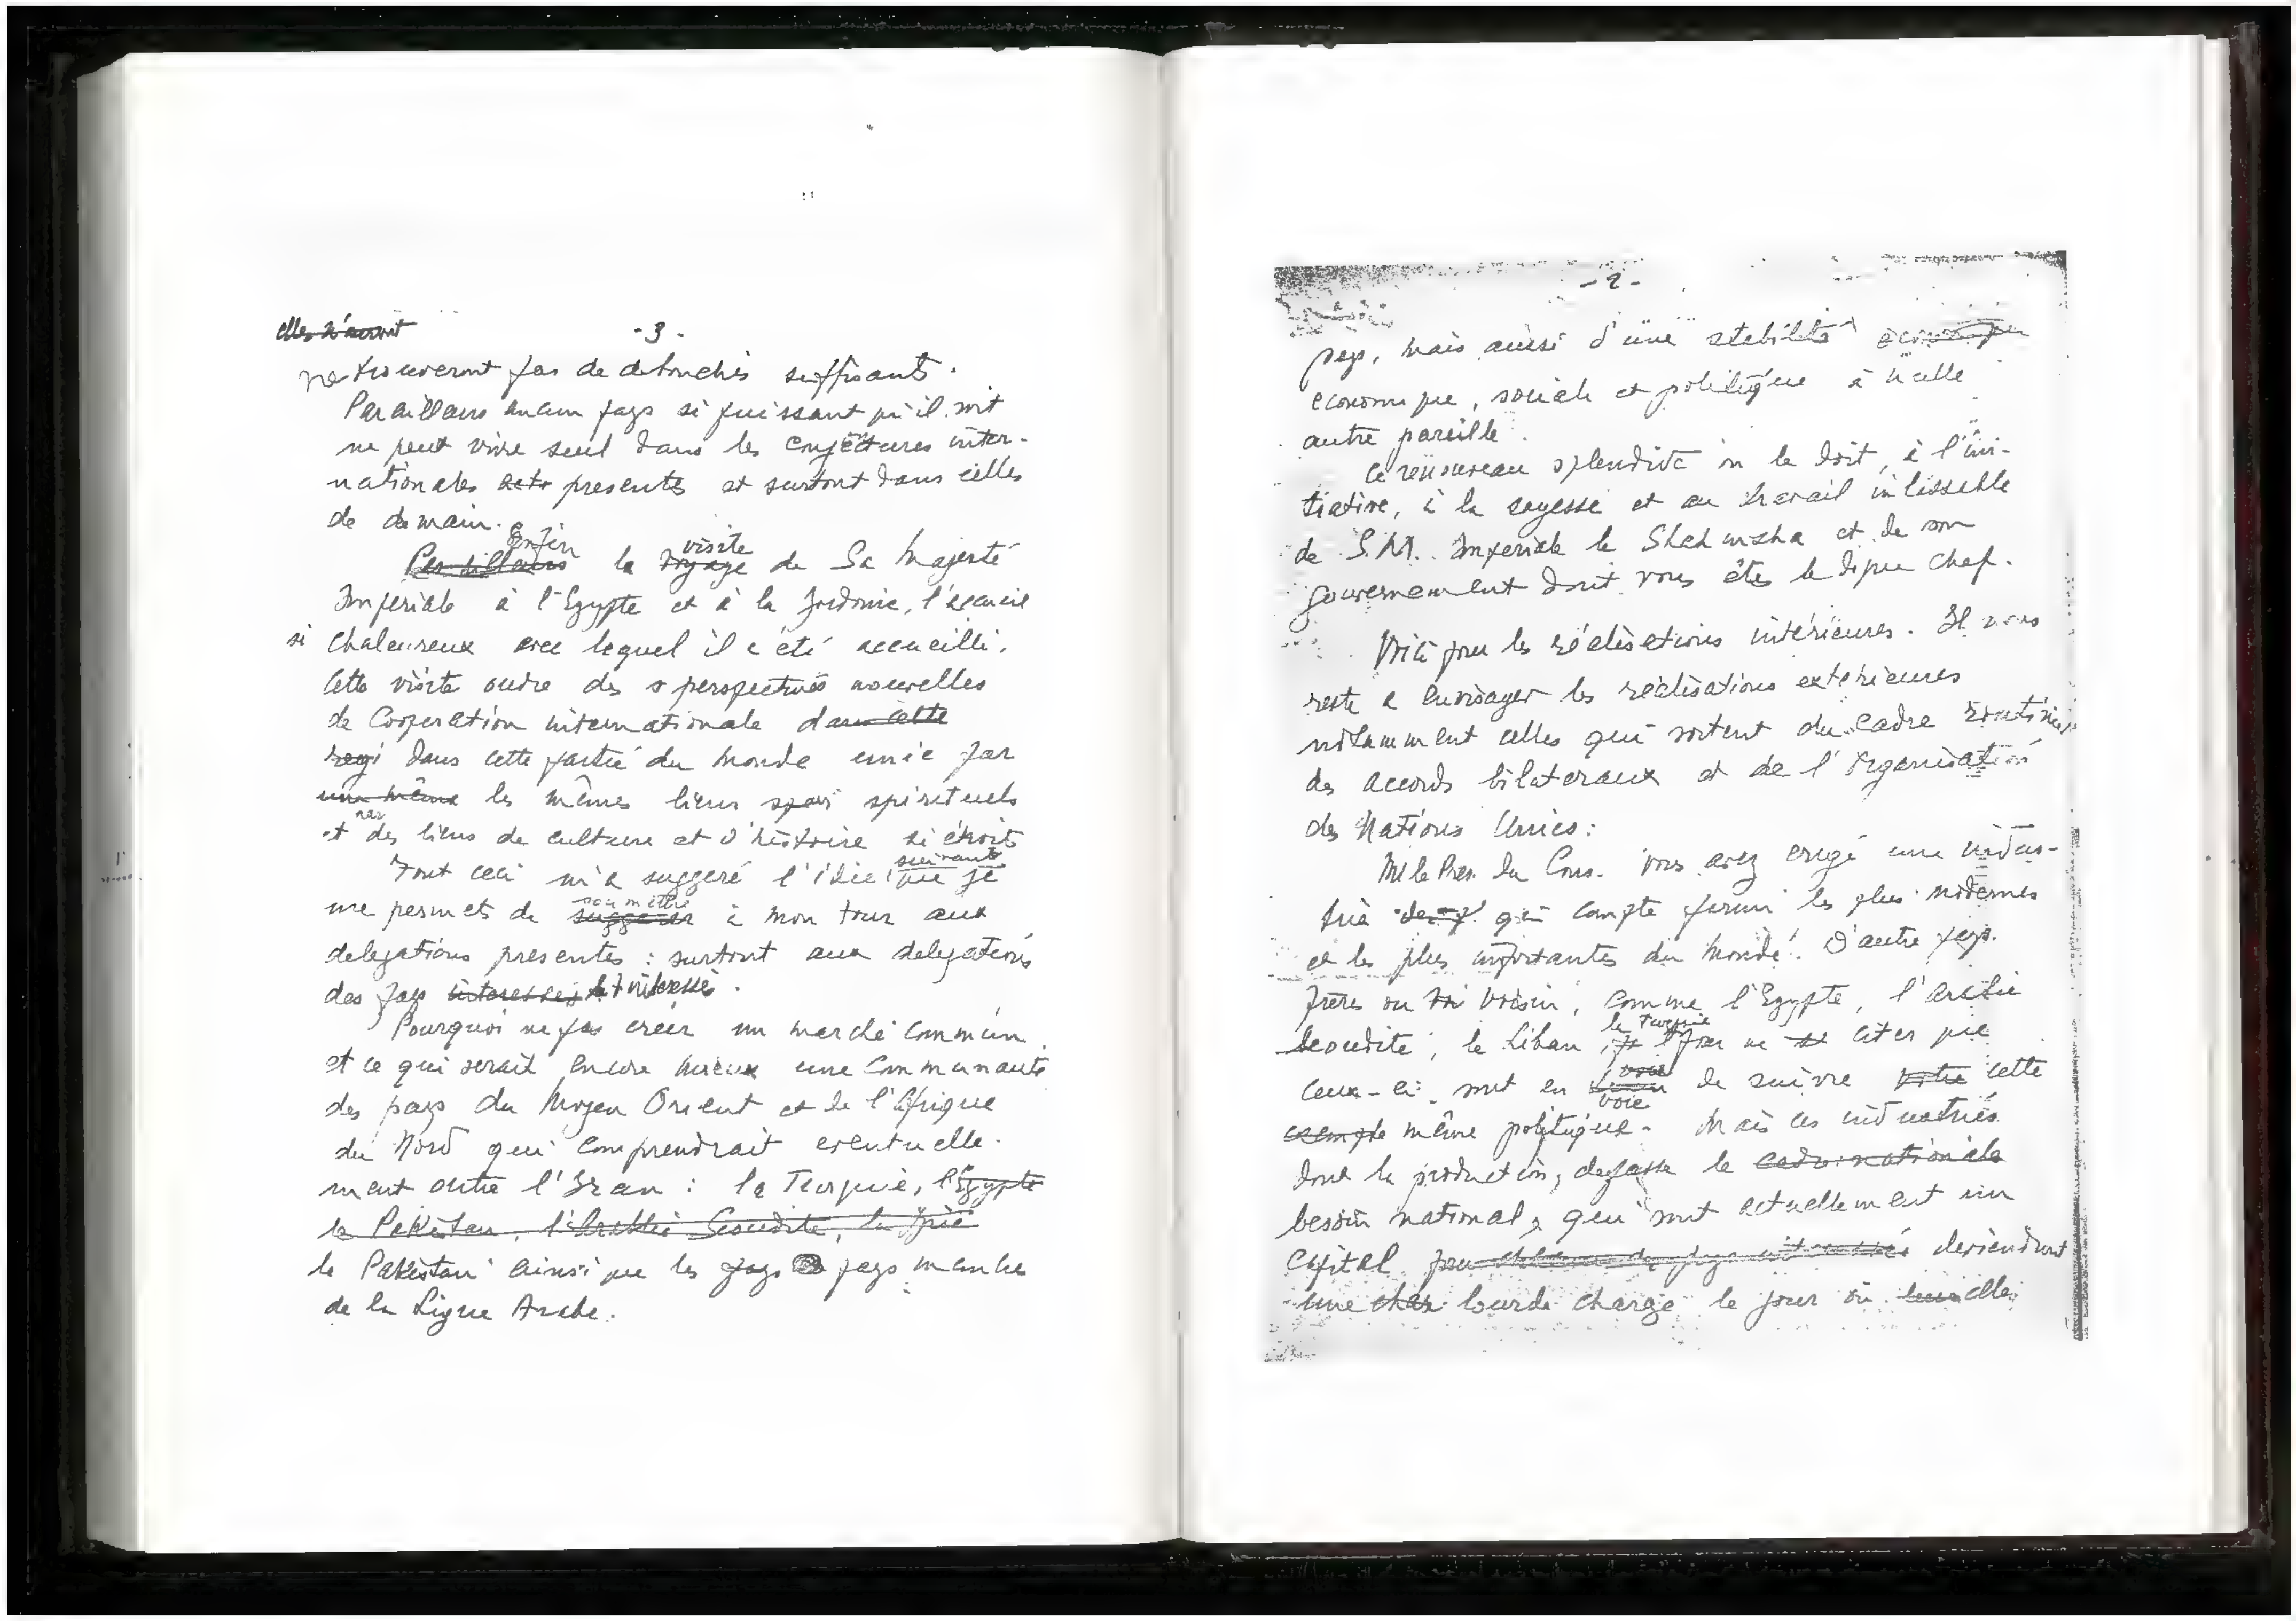 - 3 -
elles n'auront
ne trouveront pas de debouchés suffisants.
Par ailleurs aucun pays si puissant qu'il soit
ne peut vivre seul dans les conjectures inter-
nationales presentes et surtout dans celles
de demain.
Enfin visite
Par ailleurs la voyage de Sa Majesté
Imperiale à l'Egypte et à la Jordanie, l'accueil
si chaleureux avec lequel il a été accueilli.
Cette visite ouvre des perspectives nouvelles
de Cooperation internationale dans cette
regi dans cette partie du monde unie par
une même les mêmes liens spiri spirituels
et par des liens de culture et d'histoire si étroits
suivante
Tout ceci m'a suggeré l'idée que je
soumettre
me permets de suggerer à mon tour aux
delegations presentes : surtout aux delegations
des pays interessés
Pourquoi ne pas créer un marché commun
et ce qui serait encore mieux une Communauté
des pays du Moyen Orient et de l'Afrique
du Nord qui comprendrait eventuelle-
ment outre l'Iran : la Turquie, l'Egypte
le Pakistan, l'Arabie Seoudite, la
le Pakistan ainsi que les pays pays membres
de la Ligue Arabe.
- 2 -
pays, mais aussi d'une stabilité
economique, sociale et politique à nulle
autre pareille.
Ce renouveau splendide on le doit, à l'ini-
tiative, à la sagesse et au travail inlassable
de S.M. Imperiale le Shahinsha et de son
gouvernement dont vous êtes le digne Chef.
Voici pour les réalisations intérieures. Il nous
reste a envisager les réalisations extérieures
notamment celles qui sortent du cadre
des accords bilateraux et de l'Organisation
des Nations Unies :
M le Pres. du Cons. vous avez erigé une indus-
trie qui compte parmi les plus modernes
et les plus importantes du Monde. D'autre pays.
frères ou voisin, comme l'Egypte, l'Arabie
la Turquie
Seoudite, le Liban, pour ne citer que
ceux-ci sont en voie de suivre votre cette
exemple même politique. Mais ces industries
dont la production, depasse le cadre national
besoin national, qui sont actuellement un
Capital deviendront
une lourde charge le jour où elles